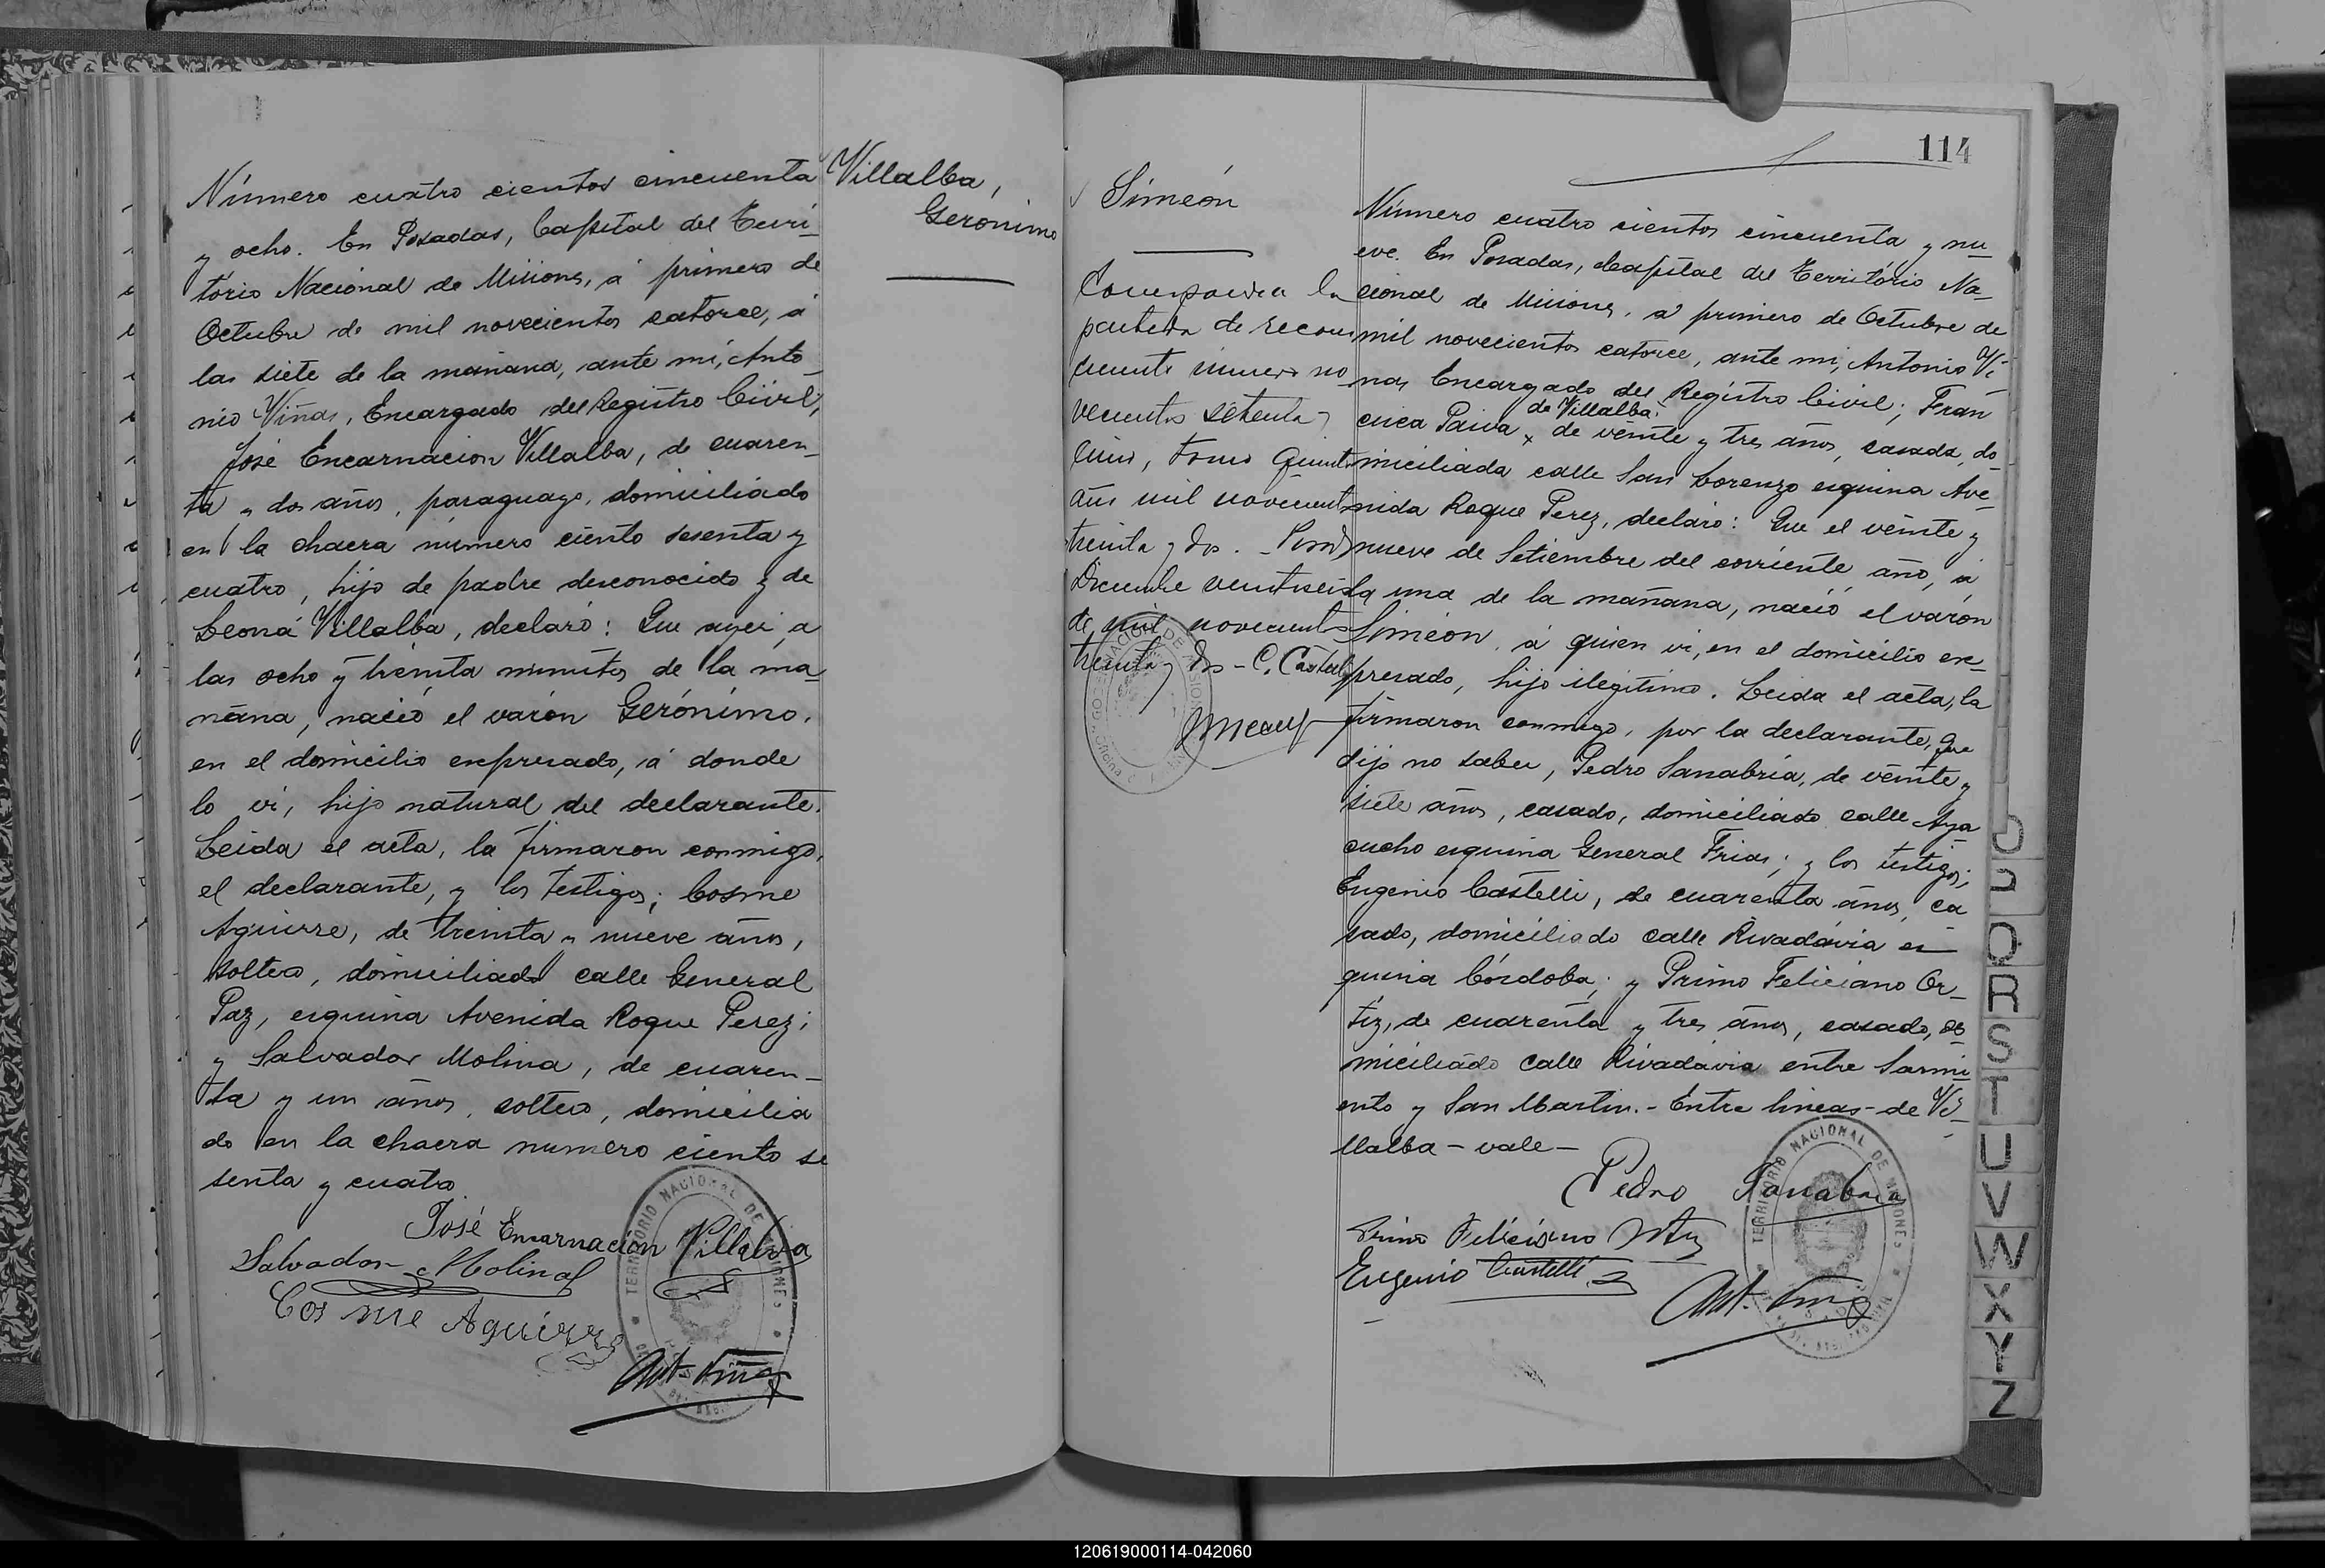 Número cuatro cientos cincuenta
y ocho. En Posadas, Capital del Terri-
tório Nacional de Misiones, á primero de
Octubre de mil novecientos catorce, á
las siete de la mañana, ante mí, Anto-
nio Viñas, Encargado del Registro Civil,
José Encarnacion Villalba, de cuaren-
ta y dos años, paraguayo, domiciliado
en la chacra número ciento sesenta y
cuatro, hijo de padre desconocido y de
Leona Villalba, declaró: Que ayer, a
las ocho y treinta minutos de la ma-
ñana, nació el varón Gerónimo,
en el domicilio expresado, á donde
lo ví, hijo natural del declarante.
Leida el acta, la firmaron conmigo,
el declarante, y los testigos; Cosme
Aguirre, de treinta y nueve años,
soltero, domiciliado calle General
Paz, esquina Avenida Roque Perez;
y Salvador Molina, de cuaren-
ta y un años, soltero, domicilia
do en la chacra numero ciento se
senta y cuatro.
José Encarnación Villalva
Salvador Molina
Cosme Aguirre
Ant. Viñas
TERRITORIO NACIONAL DE MISIONES
Villalba,
Gerónimo
114
Simeón
Corresponde la
partida de recono
cimiento número no
vecientos setenta y
uno, tomo quinto
año mil novecientos
treinta y dos. - Posadas
Diciembre veintiseis
de mil novecientos
treinta y dos - C. Castelli
Número cuatro cientos cincuenta y nu-
eve. En Posadas, Capital del Território Na-
cional de Misiones, á primero de Octubre de
mil novecientos catorce, ante mí, Antonio Vi-
ñas Encargado del Registro Civil; Fran
de Villalba.
cisca Paiva x de veinte y tres años, casada, do-
miciliada calle San Lorenzo esquina Ave-
nida Roque Perez, declaró: Que el veinte y
nueve de Setiembre del corriente año, á
la una de la mañana, nació el varón
Simeón, á quien ví, en el domicilio ex-
presado, hijo ilegítimo. Leida el acta, la
firmaron conmigo, por la declarante, que
dijo no saber, Pedro Sanabria, de veinte y
siete años, casado, domiciliado calle Aya
cucho esquina General Frias; y los testigos;
Eugenio Castelli, de cuarenta años, ca
sado, domiciliado calle Rivadávia es-
quina Córdoba; y Primo Feliciano Or-
tiz, de cuarenta y tres años, casado, do-
miciliado calle Rivadavia entre Sarmi
ento y San Martin. - Entre lineas - de Vi-
llalba - vale -
Pedro Sanabria
Primo Feliciano Ortiz
Eugenio Castelli
Ant. Viñas
TERRITORIO NACIONAL DE MISIONES
Q
R
S
T
U
V
W
X
Y
Z
120619000114-042060